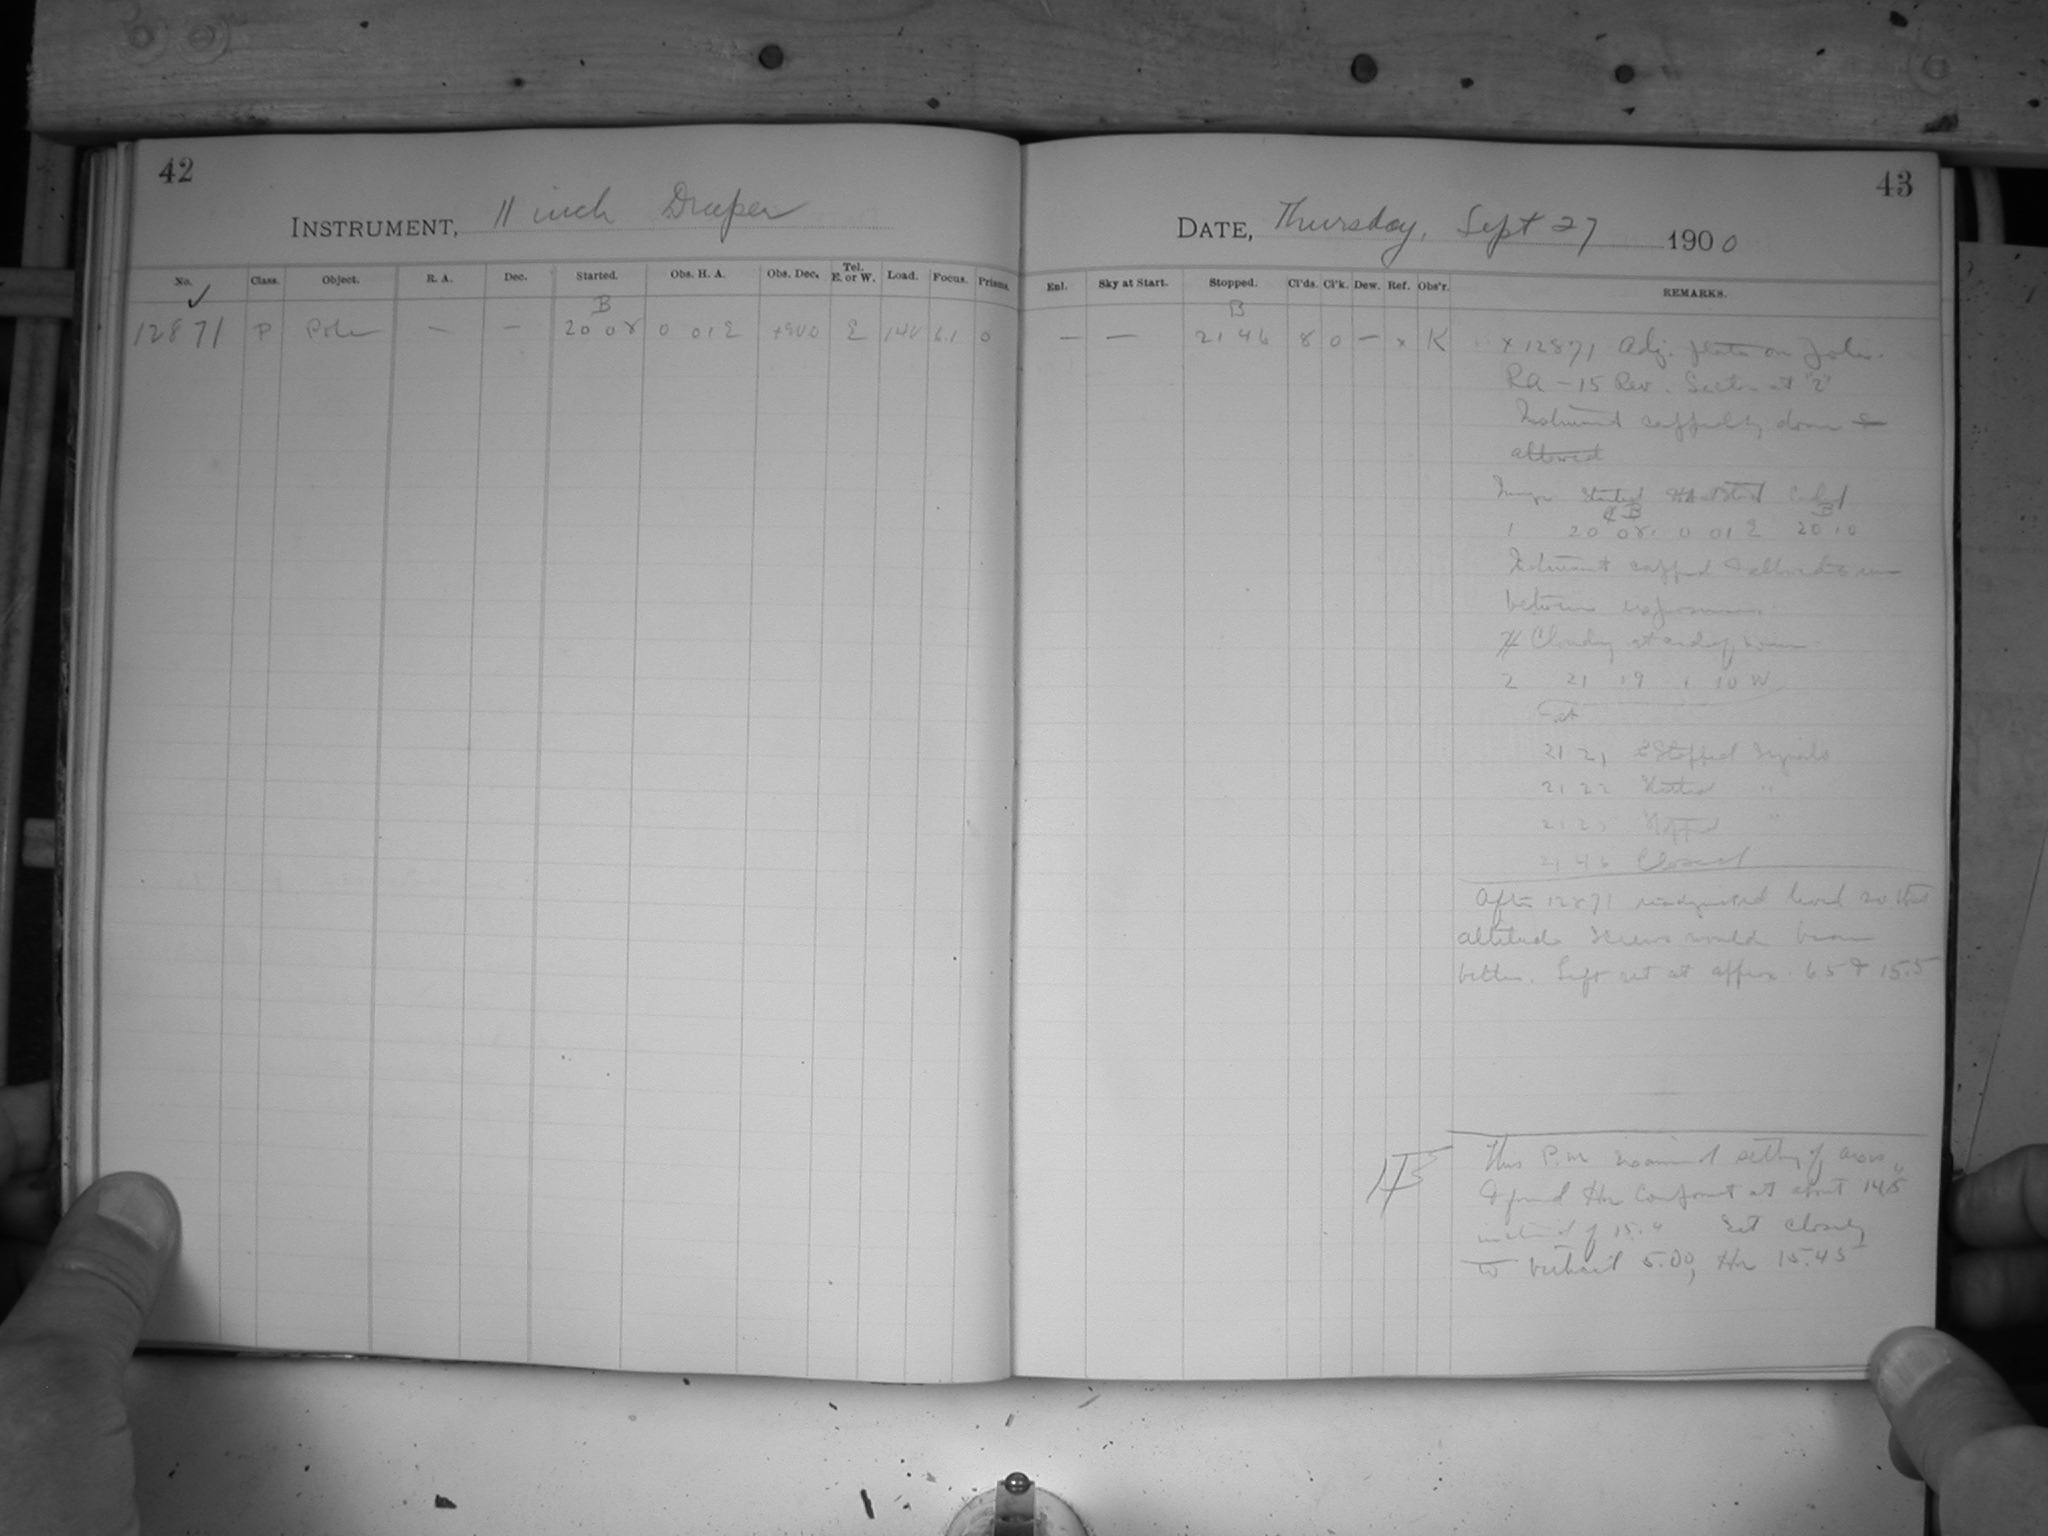 42
INSTRUMENT, 11 inch Draper
No. Class. Object. R. A. Dec. Started. Obs. H. A. Obs. Dec. Tel. E. or W. Load. Focus. Prisms.
✓ B
12871 P Pole — — 20 08 0 01 E E 6.1 0
43
DATE, Thursday, Sept 27 1900
Enl. Sky at Start. Stopped. Cl'ds. Cl'k. Dew. Ref. Obs'r. REMARKS.
B
— — 21 46 8 0 — x K
x 12871 Adj. plate on Pole.
RA – 15 Rev. Sector at "2"
Instrument down &
allowed
Image Started HA at Start
B B
1 20 08. 0 01 E 20 10
Instrument capped & allowed to run
between exposures.
Cloudy at end of
2 21 19 1 10 W
21 21 Stopped Signals
21 22 Started "
21 23 Stopped "
21 46 Closed
After 12871 readjusted level so that
altitude screws would
better. Left set at approx. 6.5 & 15.5
This P.M. examined setting of axis
& found Hor. at about 14.5
instead of 15.4 Set closely
to Vertical 5.00, Hor 15.45